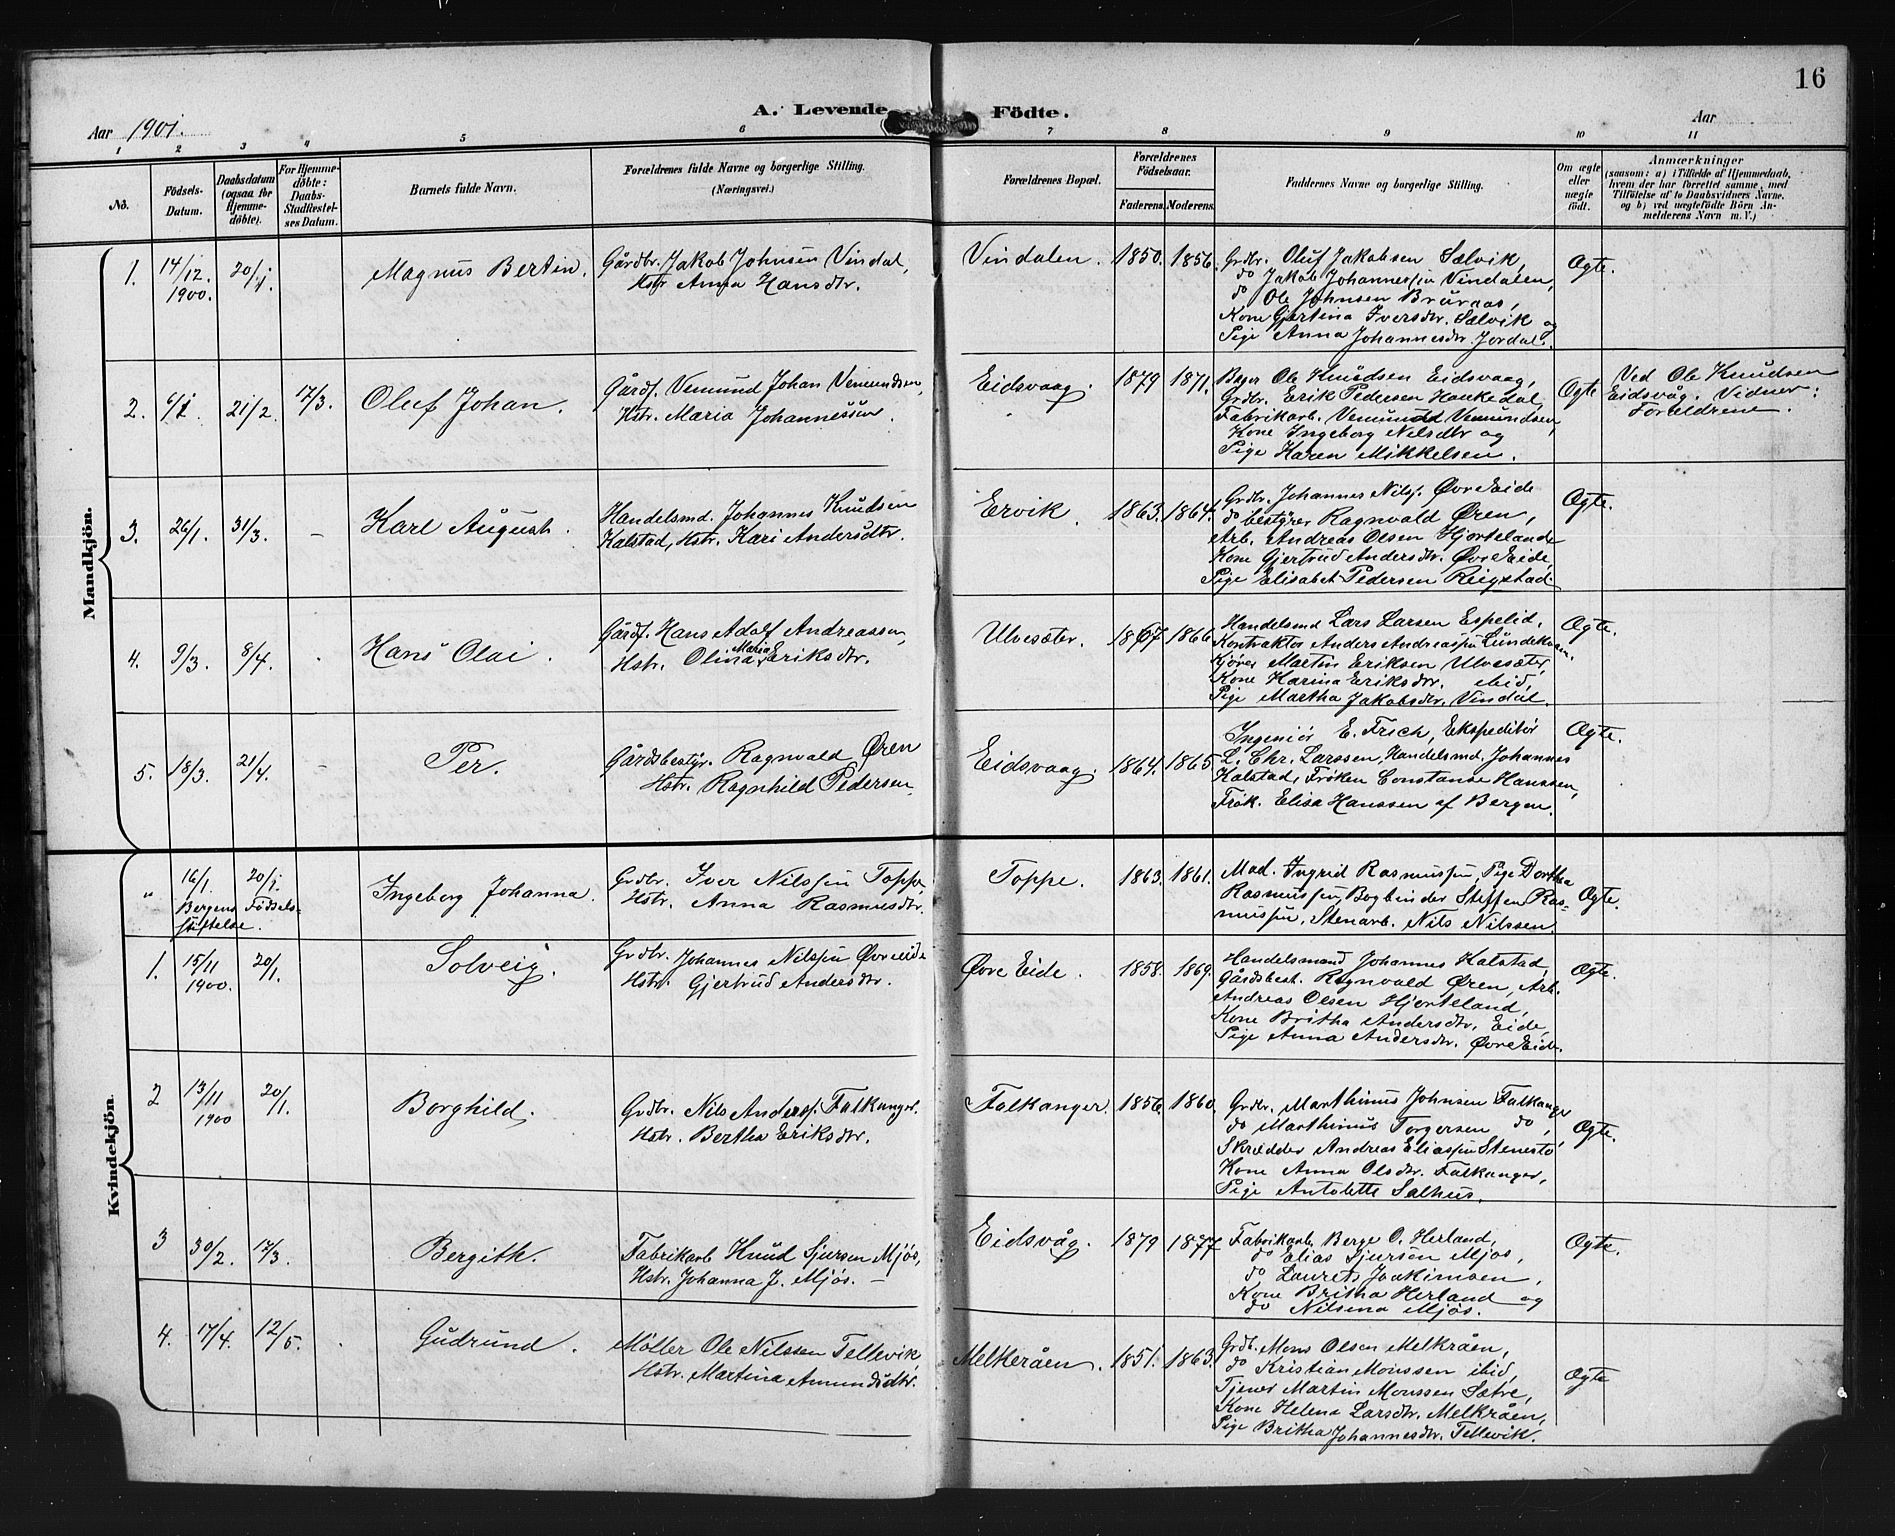 16
A. Levende Födte.
Aar 1901.
Aar
1 2 3 4 5 6 7 8 9 10 11
No.
Födsels-Datum.
Daabsdatum (ogsaa for Hjemme-döbte).
For Hjemme-döbte: Daabs-Stadfæstel-ses Datum.
Barnets fulde Navn.
Forældrenes fulde Navne og borgerlige Stilling. (Næringsvei.)
Forældrenes Bopæl.
Forældrenes Födselsaar.
Faderens. Moderens.
Faddernes Navne og borgerlige Stilling.
Om ægte eller uægte födt.
Anmærkninger
(saasom: a) i Tilfælde af Hjemmedaab,
hvem der har forrettet samme, med
Tilföielse af to Daabsvidners Navne.
og b) ved uægtefödte Börn An-
melderens Navn m. V.)
Mandkjön.
1. 14/12. 1900. 20/1. Magnus Bertin.
Gårdbr. Jakob Johnsen Vindal,
Hstr. Anna Hansdtr.
Vindalen. 1850. 1856.
Grdbr. Oluf Jakobsen Sælvik,
do Jakob Johannessen Vindalen,
do Ole Johnsen Bruraas,
Kone Gjertina Iversdtr. Sælvik og
Pige Anna Johannesdtr. Jordal.
Ægte.
2. 6/1. 21/2. 17/3. Oluf Johan.
Gårdf. Vemund Johan Vemundsen,
Hstr. Maria Johannessen.
Eidsvaag. 1879 1871.
Bager Ole Knudsen Eidsvaag,
Grdbr. Erik Pedersen Haukedal
Fabrikarb. Vemund Vemundsen,
Kone Ingeborg Nilsdtr og
Pige Karen Mikkelsen.
Ægte
Ved Ole Knudsen
Eidsvåg. Vidner:
Forældrene.
3. 26/1. 31/3. – Karl August.
Handelsmd. Johannes Knudsen
Kalstad, Hstr. Kari Andersdtr.
Ervik. 1863. 1864.
Grdbr. Johannes Nilss. Øvre Eide
do bestyrer Ragnvald Øren,
Arb. Andreas Olsen Hjorteland
Kone Gjertrud Andersdtr. Øvre Eide,
Pige Elisabet Pedersen Reigstad.
Ægte.
4. 9/3. 8/4. Hans Olai.
Gårdf. Hans Adolf Andreassen,
Hstr. Olina Maria Eriksdtr.
Ulvesæter. 1867 1866
Handelsmd Lars Larsen Espelid,
Kontraktør Anders Andreassen
Kjører Martin Eriksen Ulvesæter,
Kone Karina Eriksdtr. ibid,
Pige Martha Jakobsdtr. Vindal.
Ægte.
5. 18/3. 21/4. – Per.
Gårdsbestyr. Ragnvald Øren
Hstr. Ragnhild Pedersen.
Eidsvaag. 1864. 1865
Ingeniör E. Frich, Ekspeditör
L. Chr. Larssen, Handelsmd. Johannes
Kalstad, Frøken Constanse Hanssen,
Frøk. Elisa Hanssen af Bergen.
Ægte.
Kvindekjön.
" 16/1. Bergens Födsels-stiftelse. 20/1. Ingeborg Johanna.
Grdbr. Iver Nilssen Toppe,
Hstr. Anna Rasmusdtr.
Toppe. 1863. 1861.
Mad. Ingrid Rasmussen, Pige Dorthea
Rasmussen, Bogbinder Steffen Ras-
mussen, Stenarb. Nils Nilssen.
Ægte.
1. 15/11 1900. 20/1. Solveig.
Grdbr. Johannes Nilssen Øvreeide
Hstr. Gjertrud Andersdtr.
Øvre Eide. 1858. 1869.
Handelsmand Johannes Kalstad,
Gårdsbest. Ragnvald Øren, Arb.
Andreas Olsen Hjorteland,
Kone Britha Andersdtr. Eide,
Pige Anna Andersdtr. Øvre Eide.
Ægte.
2 13/11 1900 20/1. Borghild.
Grdbr. Nils Anderss. Falkanger.
Hstr. Bertha Eriksdtr.
Falkanger. 1856. 1860.
Grdbr. Marthinus Johnsen Falkanger
do Marthinus Torgersen do,
Skrædder Andreas Eliassen Stenestø,
Kone Anna Olsdtr. Falkanger,
Pige Antolette Salhus.
Ægte.
3 30/2. 17/3. Bergith.
Fabrikarb Knud Sjursen Mjös,
Hstr. Johanna J. Mjös. –
Eidsvåg. 1879 1877
Fabrikarb. Berge O. Herland,
do Elias Sjursen Mjös
do Laurets Joakimsen,
Kone Britha Herland og
do Nilsena Mjös.
Ægte.
4. 17/4. 12/5. Gudrund.
Møller Ole Nilssen Tellevik,
Hstr. Martina Amundsdtr.
Melkeråen. 1851. 1863.
Grdb. Mons Olsen Melkråen,
do Kristian Monssen ibid,
Tjener Martin Monssen Sætre,
Kone Helena Larsdtr. Melkråen,
Pige Britha Johannesdtr. Tellevik.
Ægte